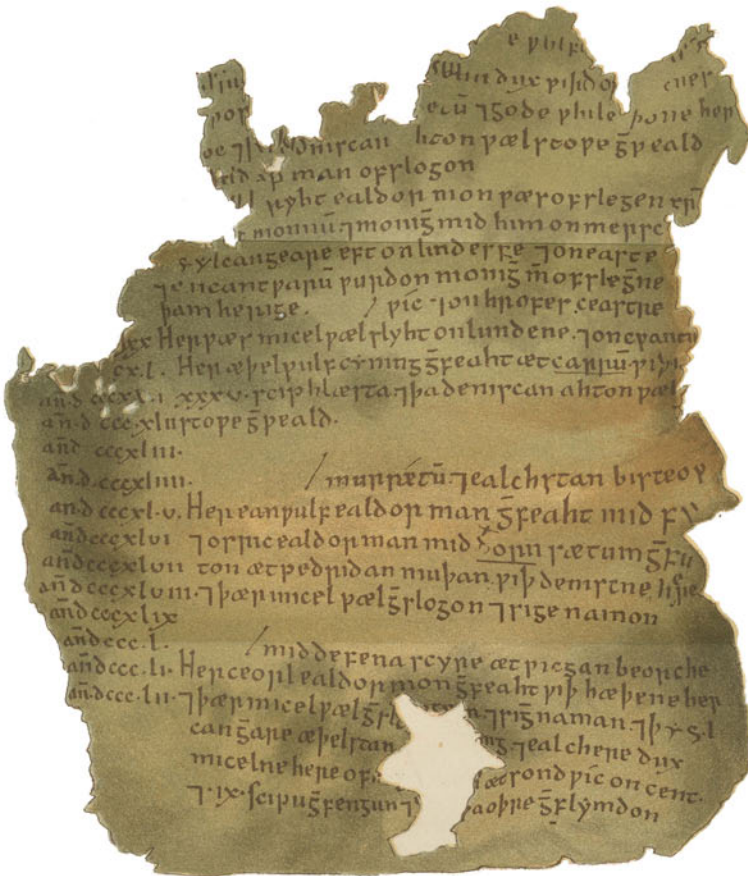 e ƿulf
dux ƿið
ecū ⁊ gode hƿile þone her
niscan hton ƿælstoƿe g̅ƿeald
man ofslogon
ryht ealdor mon ƿæs ofslegen
monnū ⁊ monig̅ mid him on mersc
ylcan geare eft on lindesse ⁊ on easte
⁊ on cantƿarū ƿurdon monig̅ m̅ ofslegne
þam herige. / ƿic ⁊ on hrofes ceastre
xx Her ƿæs micel ƿælslyht on lundene. ⁊ on cƿantu
cx.l. Her æþelƿulf cyning g̅feaht æt carrū ƿiþ
an̅.d cccxl.i xxxv. sciphlæsta ⁊ þa deniscan ahton ƿæl
an̅.d ccc.xlii stoƿe g̅ƿeald.
an̅d cccxliii.
an̅.d cccxliiii. / mursætū. ⁊ ealchstan bisceop
an̅.d cccxl.v. Her eanƿulf ealdor man g̅feaht mid su
an̅dcccxlvi ⁊ osric ealdor man mid dorn sætum g̅fu
an̅dcccxlvii ton æt pedridan muþan. ƿiþ deniscne h̅e
an̅dcccxlviii. ⁊ þær micel ƿæl g̅slogon ⁊ sige namon
an̅dcccxlix
an̅dccc.l. / mid defena scyre æt ƿicgan beorche
an̅dccc.li. Her ceorl ealdor mon g̅feaht ƿiþ hæþene her
an̅dccc.lii. ⁊ þær micel ƿæl g̅sl ⁊ sig̅ naman. ⁊ þ y s. l
can g̅are æþelstan ng ⁊ ealchere dux
micelne here of æt sondƿic on cent.
⁊ .ix. scipu g̅fengun ⁊ þa oþre g̅flymdon